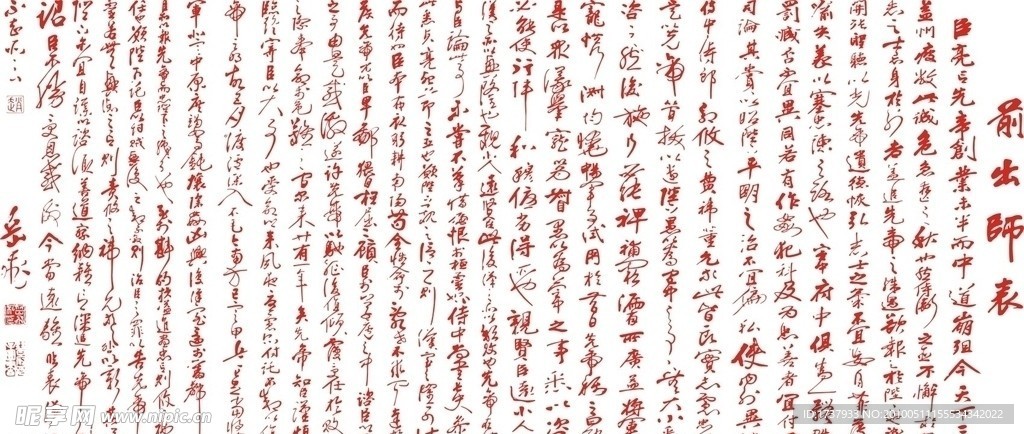 前出師表
臣亮言先帝創業未半而中道崩殂今天下三
益州疲敝此誠危急存亡之秋也然侍衛之臣不懈
志之士忘身於外者蓋追先帝之殊遇欲報之於陛
開張聖聽以光先帝遺德恢弘志士之氣不宜妄自菲
喻失義以塞忠諫之路也宮中府中俱為一體陟
罰臧否不宜異同若有作奸犯科及為忠善者宜付
司論其賞以昭陛下平明之治不宜偏私使內外異
侍中侍郎郭攸之費禕董允等此皆良實志慮忠
是以先帝簡拔以遺陛下愚以為宮中之事事無大小
咨之然後施行必能裨補闕漏有所廣益將軍
寵性行淑均曉暢軍事試用於昔日先帝稱之曰能
是以眾議舉寵為督愚以為營中之事悉以咨
必能使行陣和穆優劣得所也親賢臣遠小人
漢之所以興隆也親小人遠賢臣此後漢之所以傾頹也先帝
與論此事未嘗不歎息痛恨於桓靈也侍中尚書長史參
此悉貞亮死節之臣也願陛下親之信之則漢室之隆可
而待也臣本布衣躬耕南陽苟全性命於亂世不求聞達
侯先帝不以臣卑鄙猥自枉屈顧臣於草廬之中諮臣
之事由是感激遂許先帝以驅馳後值傾覆受任於敗
之際奉命於危難之間爾來廿有一年矣先帝知臣謹
臨崩寄臣以大事也受命來夙夜憂歎恐付託不效以
帝之明故五月渡瀘深入不毛今南方已定甲兵已足當
軍北定中原庶竭駑鈍攘除姦凶興復漢室還於舊都
臣所以報先帝而忠陛下之職分也至於斟酌損益進盡忠言則攸
任也願陛下託臣以討賊興復之效不效則治臣之罪以告先帝
靈若無興德之言則責攸之禕允等咎以彰其
陛下亦宜自謀以諮諏善道察納雅言深追先帝
詔臣不勝受恩感激今當遠離臨表涕
不知所云
岳飛
昵享网 www.nipic.cn
ID:1737933 NO:20100511155534342022